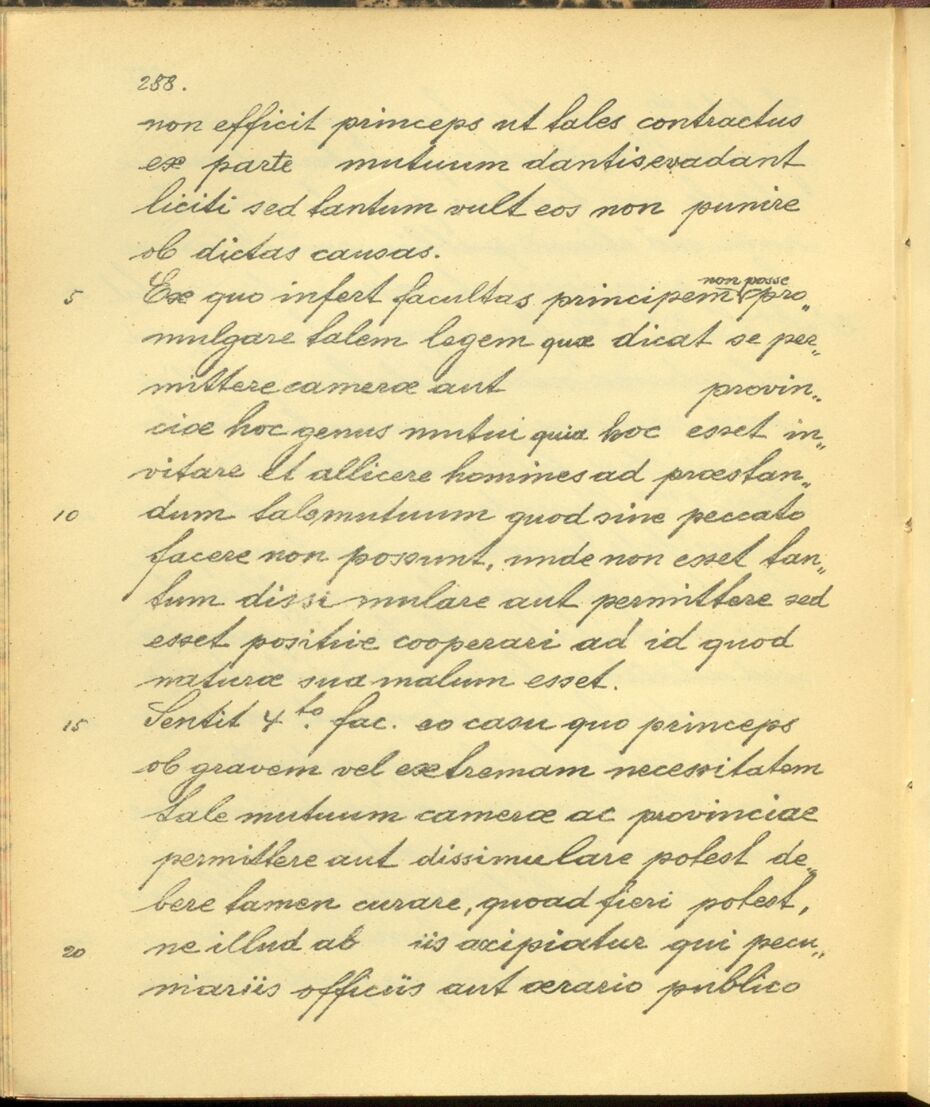 288.
non efficit princeps ut tales contractus
ex parte mutuum dantis evadant
liciti sed tantum vult eos non punire
ob dictas causas.
non posse
5 Ex quo infert facultas principem pro„
mulgare talem legem quæ dicat se per„
mittere cameræ aut provin„
ciæ hoc genus mutui quia hoc esset in„
vitare et allicere homines ad præstan„
10 dum tale mutuum quod sine peccato
facere non possunt, unde non esset tan„
tum dissimulare aut permittere sed
esset positive cooperari ad id quod
naturæ sua malum esset.
15 Sentit 4to. fac. eo casu quo princeps
ob gravem vel extremam necessitatem
tale mutuum cameræ ac provinciae
permittere aut dissimulare potest de„
bere tamen curare, quoad fieri potest,
20 ne illud ab iis accipiatur qui pecu„
niariis officiis aut ærario publico